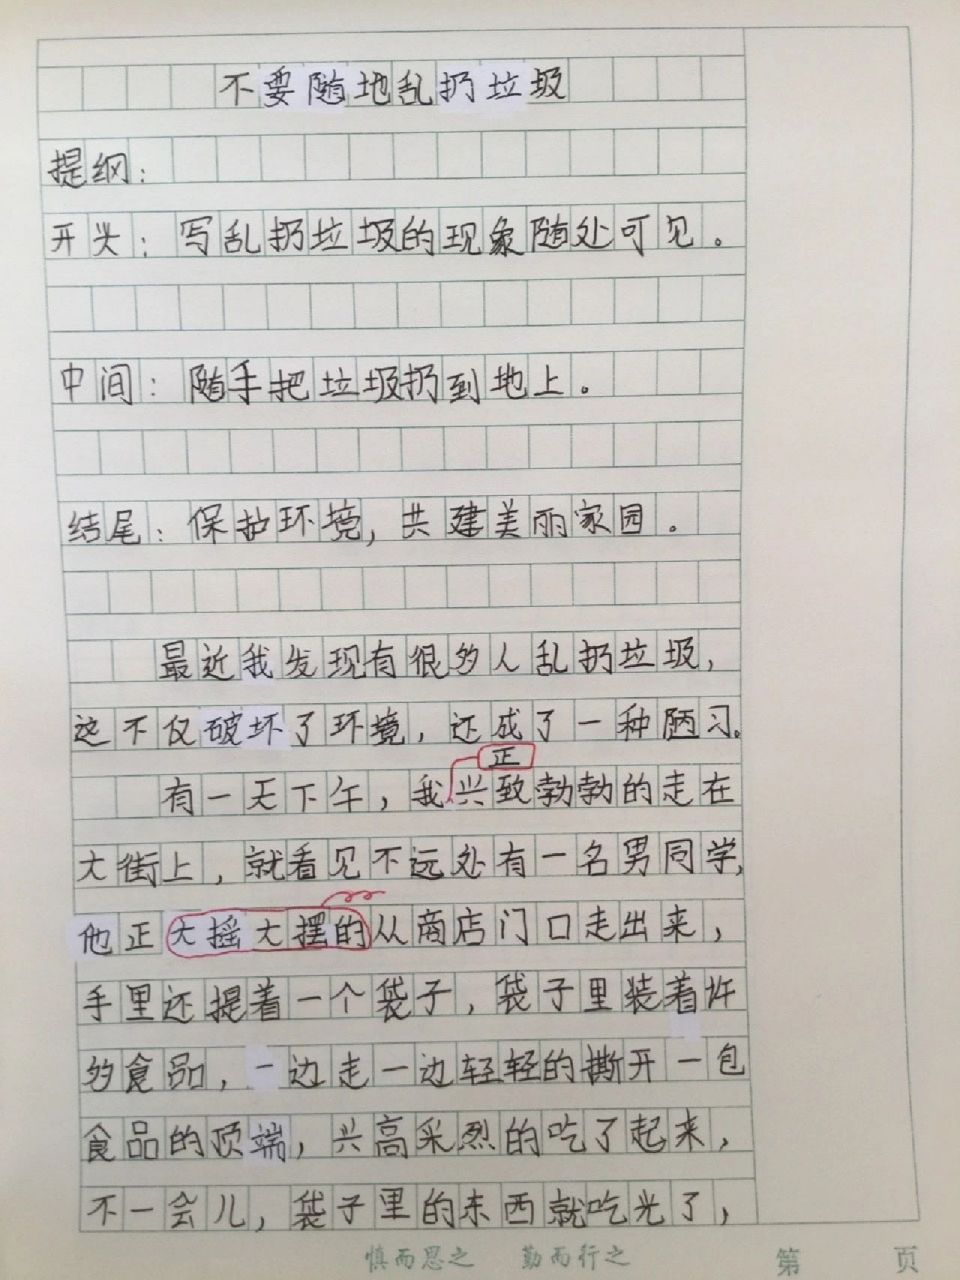 不要随地乱扔垃圾
提纲：
开头：写乱扔垃圾的现象随处可见。
中间：随手把垃圾扔到地上。
结尾：保护环境，共建美丽家园。
最近我发现有很多人乱扔垃圾，
这不仅破坏了环境，还成了一种陋习。
正
有一天下午，我兴致勃勃的走在
大街上，就看见不远处有一名男同学，
他正大摇大摆的从商店门口走出来，
手里还提着一个袋子，袋子里装着许
多食品，一边走一边轻轻的撕开一包
食品的顶端，兴高采烈的吃了起来，
不一会儿，袋子里的东西就吃光了，
慎而思之 勤而行之 第 页